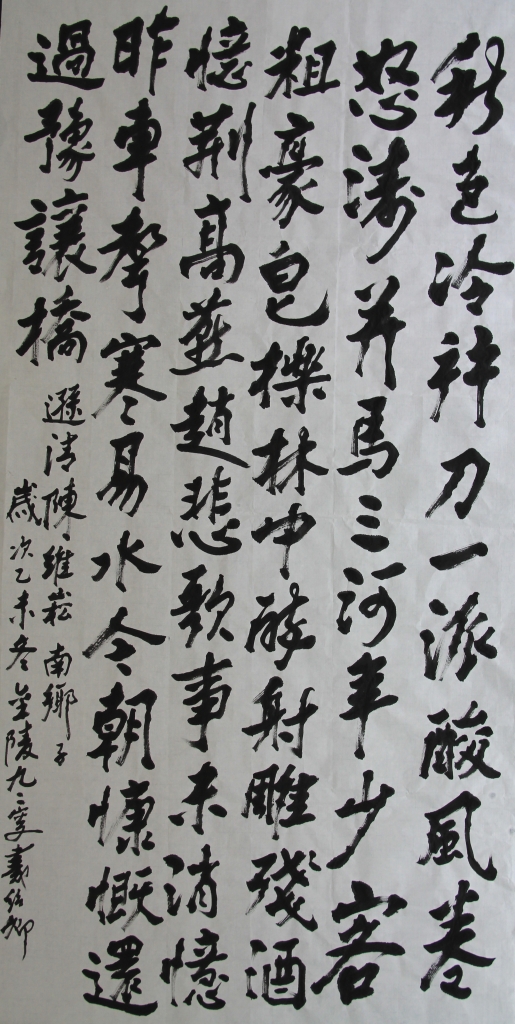 秋色冷刀一派酸風卷
怒濤并馬三河年少客
粗豪皂櫟林中醉射雕殘酒
憶荊高燕趙悲歌事未消憶
昨車聲寒易水今朝慷慨還
過豫讓橋
遜清陳維崧南鄉子
歲次乙未冬金陵九二叟戴